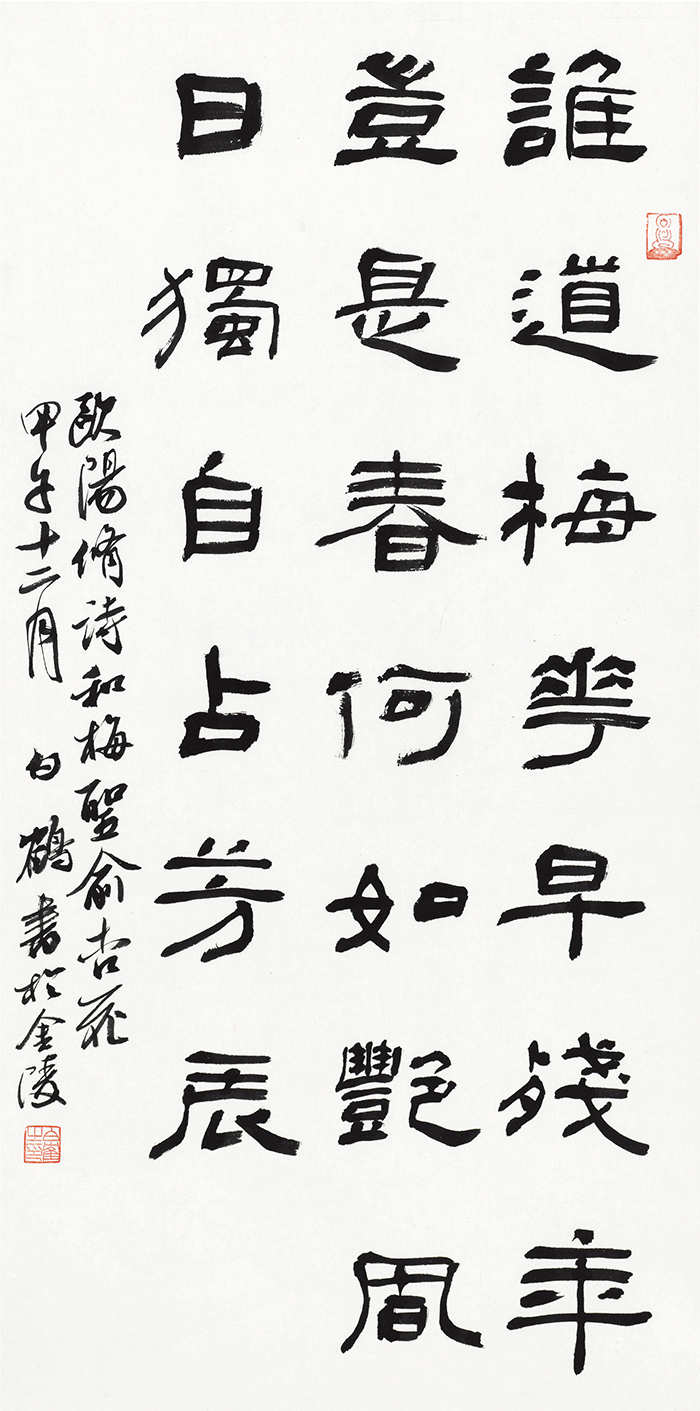 誰道梅華早殘年
豈是春何如艷風
日獨自占芳辰
歐陽脩詩和梅聖俞杏花
甲午十二月 白鶴書於金陵